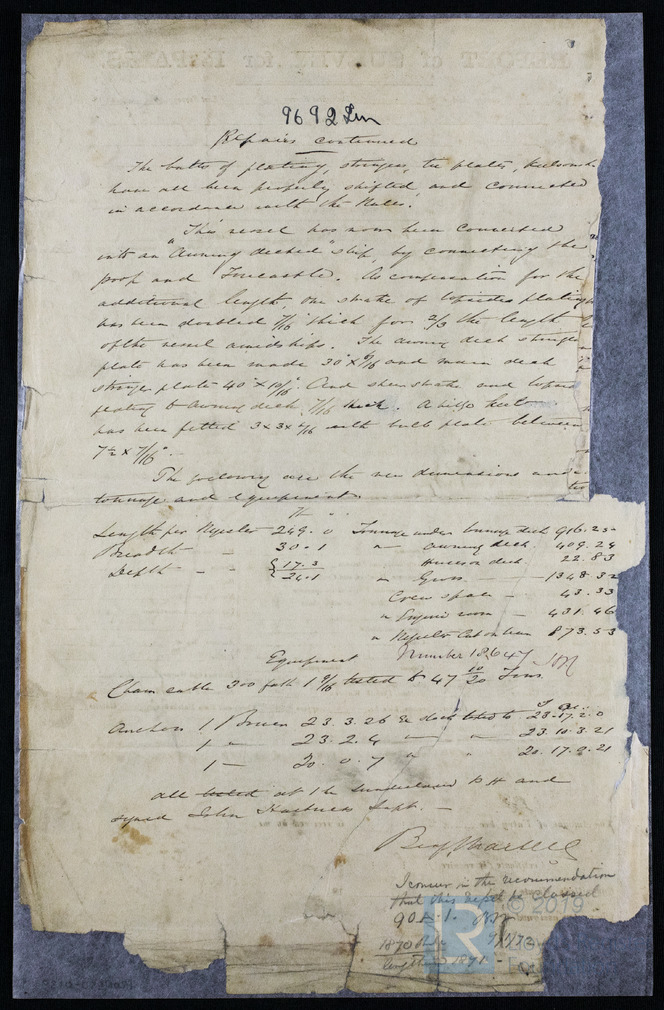 9692 Irn
Repairs continued
The butts of plating, stringer, tie plates, keelsons &c
have all been properly shifted and connected
in accordance with the Rules.
This vessel has now been converted
into an "Awning decked" ship, by connecting the
poop and Forecastle. As compensation for the
additional length, one strake of topsides plating
has been doubled 7/16 thick for 2/3 the length
of the vessel amidships. The awning deck stringer
plate has been made 30" x 6/16 and main deck
stringer plate 40" x 10/16 And sheerstrake and topside
plating to awning deck 7/16 thick. A bilge keelson
has been fitted 3 x 3 x 6/16 with bulb plate between
7½ x 7/16".
The following are the new dimensions under
tonnage and equipment.
Length per Register 249.0 Tonnage under tonnage deck 916.25
Breadth - 30.1 " - awning deck 409.24
Depth - - { 17.3 Hurricane deck 22.83
{ 24.1 " Gross - 1348.32
Crew space - 43.33
" Engine room - 431.46
" Register Cut on beam 873.53
Equipment Number 18647
Chain cable 300 fath 1 9/16 tested to 47 10/20 Tons
Anchors 1 Bower 23.3.26 Ex stock tested to 23.17.2.0
1 - 23.2.4 - " 23.10.3.21
1 - 20.0.7 " " 20.17.2.21
all tested at the Sunderland P H and
signed John Hartness Supt. -
Benj Martell
I concur in the recommendation
that this vessel be Classed
90A.1.
1870
lengthened 1871
© 2019